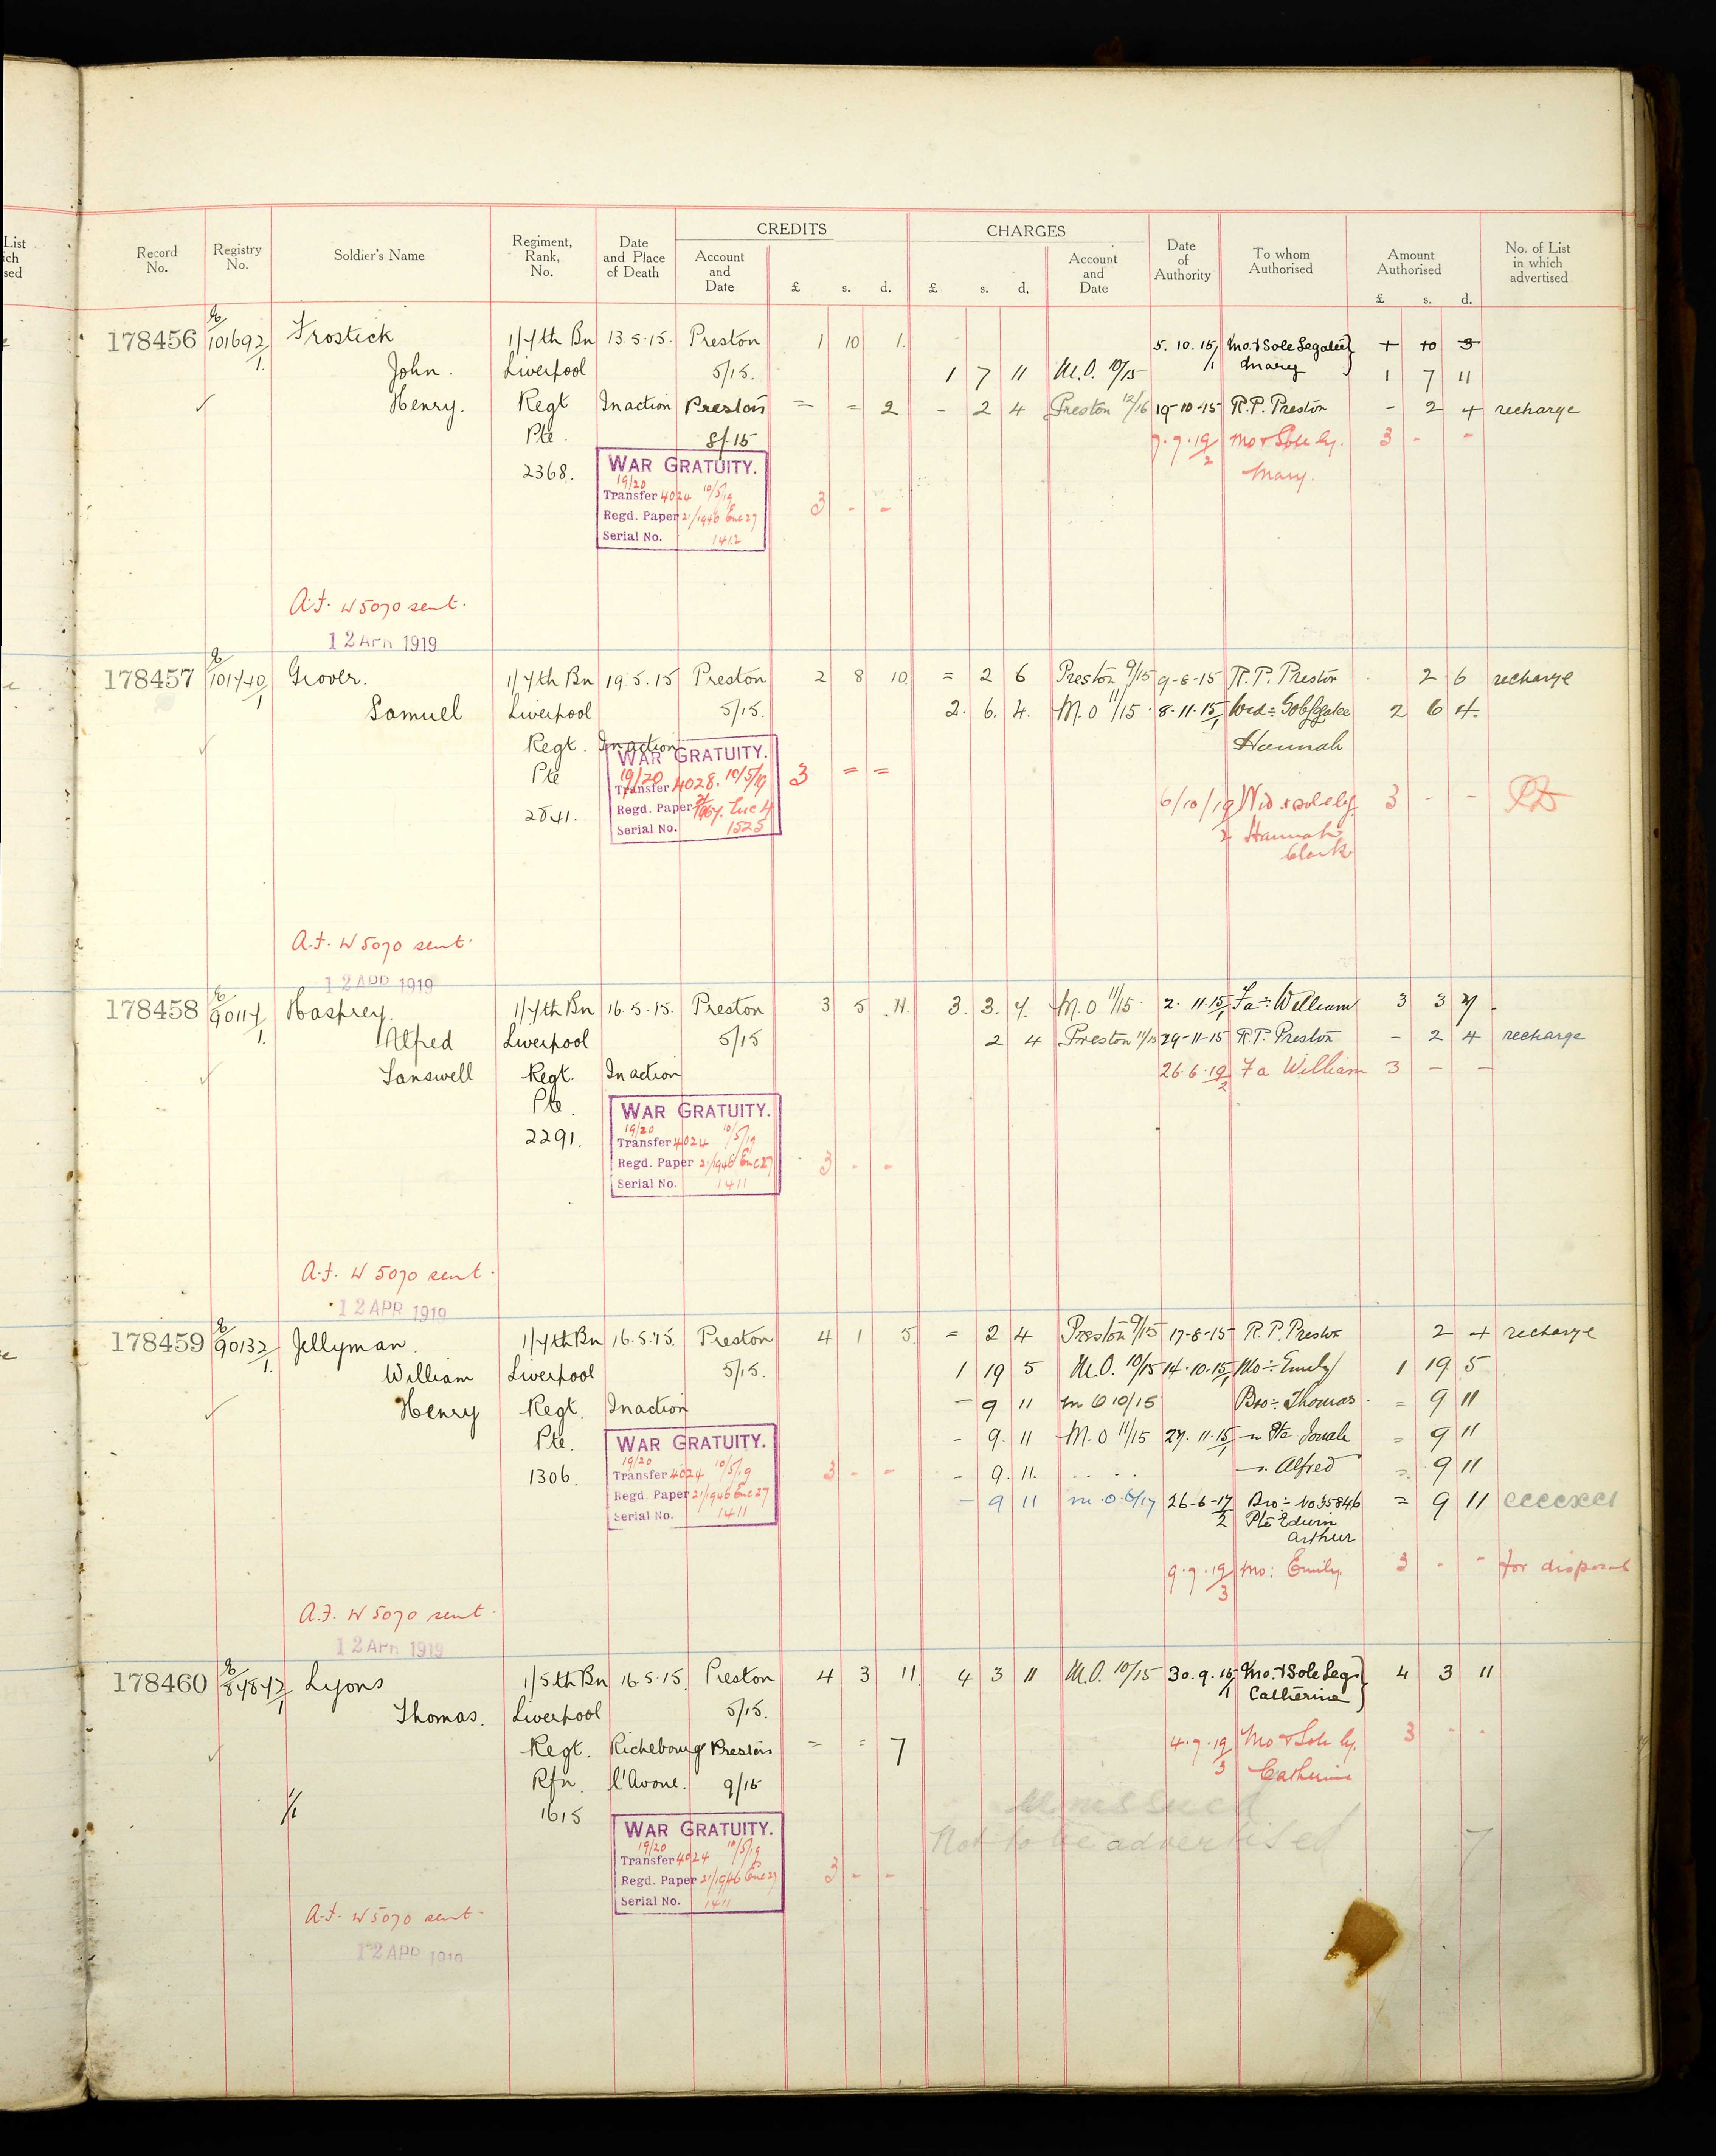 List
ich
sed
CREDITS CHARGES
Record No. Registry No. Soldier's Name Regiment, Rank, No. Date and Place of Death Account and Date £ s. d. £ s. d. Account and Date Date of Authority To whom Authorised Amount Authorised £ s. d. No. of List in which advertised
178456 E/101692/1 Frostick 1/7th Bn 13.5.15. Preston 1 10 1. 5.10.15/1 Mo. & Sole Legatee} + 10 3
John. Liverpool 5/15. 1 7 11 M.O. 10/15 Mary 1 7 11
Henry. Regt In action Preston = = 2 - 2 4 Preston 12/16 19-10-15 R.P. Preston - 2 4 recharge
Pte. 8/15 7.7.19/2 Mo & Sole leg. 3 - -
2368. WAR GRATUITY. Mary.
19/20 10/5/19
Transfer 4024 3 - -
Regd. Paper 21/1946 Enc 27
Serial No. 1412
A.F. W 5070 sent.
12 APR 1919
178457 E/101740/1 Grover. 1/7th Bn 19.5.15 Preston 2 8 10 = 2 6 Preston 9/15 9-8-15 R.P. Preston 2 6 recharge
Samuel Liverpool 5/15. 2. 6. 4. M.O 11/15 8.11.15/1 Wid= Sole legatee 2 6 4.
Regt. In action Hannah
Pte WAR GRATUITY.
19/20
Transfer 4028. 10/5/19 3 = =
2541. Regd. Paper 21/1967. Enc 4 6/10/19/2 Wid & sole leg. 3 - -
Serial No. 1525 Hannah
Clark
A.F. W 5070 sent.
12 APR 1919
178458 E/90117/1 Hasprey. 1/7th Bn 16.5.15. Preston 3 5 11. 3. 3. 7. M.O 11/15 2.11.15/1 Fa= William 3 3 7
Alfred Liverpool 5/15 2 4 Preston 11/15 29-11-15 R.P. Preston - 2 4 recharge
Sanswell Regt. In action 26.6.19/2 Fa William 3 - -
Pte.
2291. WAR GRATUITY.
19/20 10/5/19
Transfer 4024
Regd. Paper 21/1946 Enc 27 3 - -
Serial No. 1411
A.F. W 5070 sent.
12 APR 1919
178459 E/90132/1 Jellyman. 1/7th Bn 16.5.15. Preston 4 1 5. = 2 4 Preston 9/15 17-8-15 R.P. Preston 2 4 recharge
William Liverpool 5/15. 1 19 5 M.O. 10/15 14.10.15/1 Mo= Emily 1 19 5
Henry Regt. In action - 9 11 M O 10/15 Bro= Thomas. = 9 11
Pte. - 9. 11 M.O 11/15 27.11.15/1 Pte Jonah = 9 11
1306. WAR GRATUITY. - 9. 11. Alfred = 9 11
19/20 10/5/19
Transfer 4024 3 - -
Regd. Paper 21/1946 Enc 27 - 9 11 M.O. 6/17 26-6-17/2 Bro= No 35846 = 9 11
Serial No. 1411 Pte Edwin
Arthur
9.7.19/3 Mo: Emily. 3 - - for disposal
A.F. W 5070 sent.
12 APR 1919
178460 E/84847/1 Lyons 1/5th Bn 16.5.15. Preston 4 3 11. 4 3 11 M.O. 10/15 30.9.15/1 Mo. & Sole Leg} 4 3 11
Thomas. Liverpool 5/15. Catherine
Regt. Richebourg Preston = = 7 4.7.19/3 Mo & Sole leg. 3 - -
Rfn. l'Avoué. 9/15 Catherine
1/1 1615 Unissued
WAR GRATUITY. Not to be advertised 7
19/20 10/5/19
Transfer 4024
Regd. Paper 21/1946 Enc 27 3 - -
Serial No. 1411
A.F. W 5070 sent.
12 APR 1919